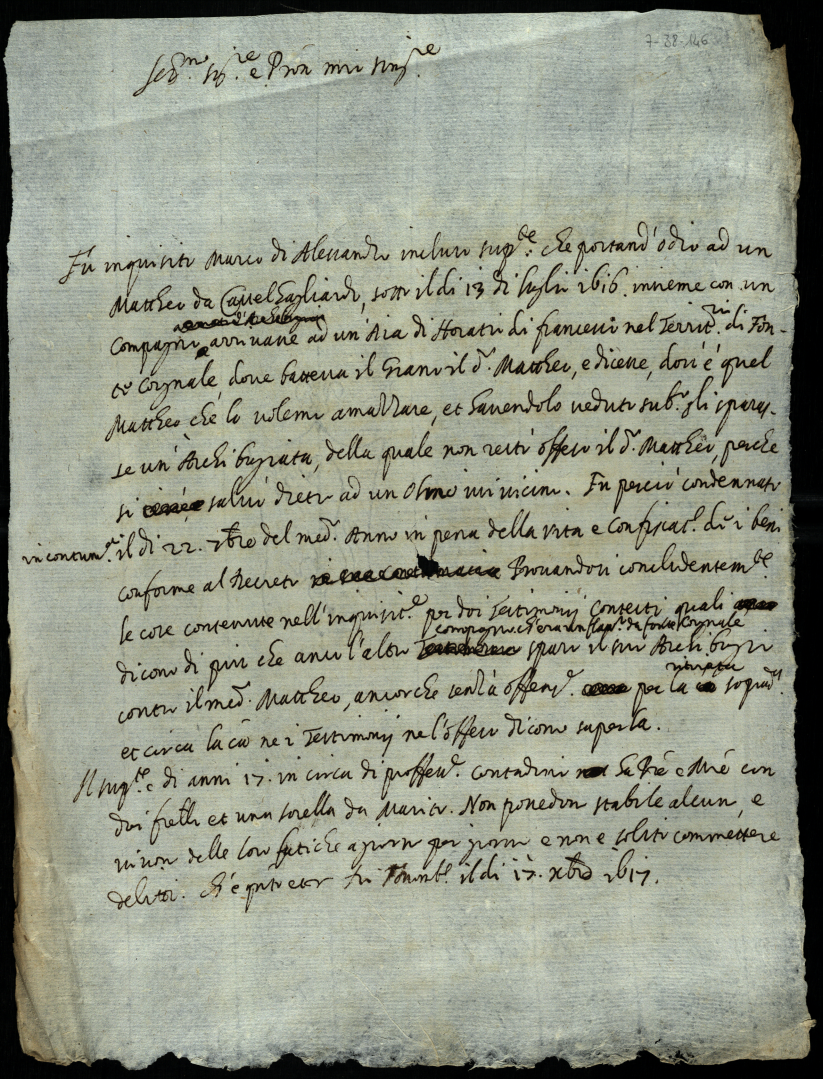 7-38-146
Ser.mo Sig.re e Pron mio sing.re
Fù inquisito Marco di Alessandro incluso sup.te che portand'odio ad un
Mattheo da Castel Gagliardo, sotto il di 13 di luglio 1616. insieme con un
compagno arrivasse ad un'Aia di Horatio di francesco nel Territ.rio di Fon-
te Cornale, dove batteva il Grano il d.o Mattheo, e dicesse, dov'è quel
Mattheo che lo volemo amazzare, et havendolo veduto sub.o gli sparas-
se un'Archibugiata, della quale non restò offeso il d.o Mattheo, perche
si salvò dietro ad un Olmo ivi vicino. Fu perciò condennato
in contum.a il di 22. 7bre del med.o Anno in pena della vita e confiscat.e de i beni
conforme al Decreto Provandosi concludentem.te
le cose contenute nell'inquisit.e per doi Testimonij contesti quali
compagno ch'era un da fonte Cornale
dicono di più che anco l'altro sparò il suo Archibugio
contro il med.o Mattheo, ancorche senza offens.e per la
et circa la ca.a ne i Testimonij ne l'offeso dicono saperla.
Il sup.te è di anni 17. in circa di profess.e contadino ha Pre e Mre con
doi fratelli et una sorella da Marito. Non possedon stabile alcuno, e
vivon delle lor fatiche a giorno per giorno e non è solito commettere
delitti. Ch'è q.nto etc. Di il di 17. xbre 1617.